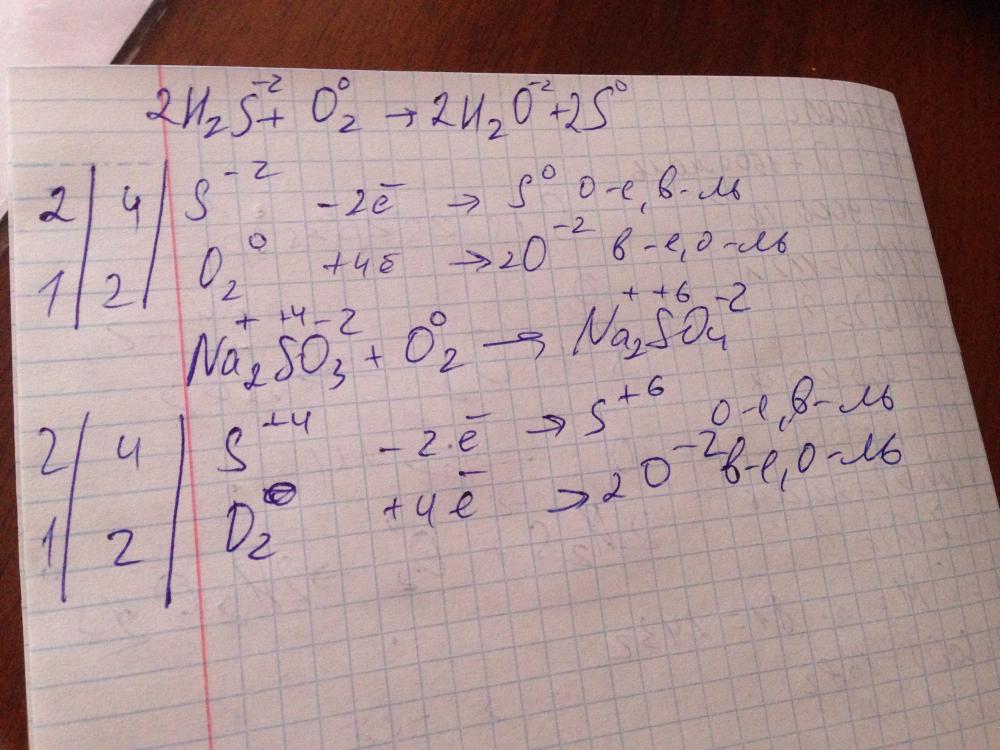 2H₂S⁻² + O₂⁰ → 2H₂O⁻² + 2S⁰
2 | 4 | S⁻² - 2ē → S⁰ о-е, в-ль
1 | 2 | O₂⁰ + 4ē → 2O⁻² в-е, о-ль
Na₂⁺S⁺⁴O₃⁻² + O₂⁰ → Na₂⁺S⁺⁶O₄⁻²
2 | 4 | S⁺⁴ - 2ē → S⁺⁶ о-е, в-ль
1 | 2 | O₂⁰ + 4ē → 2O⁻² в-е, о-ль